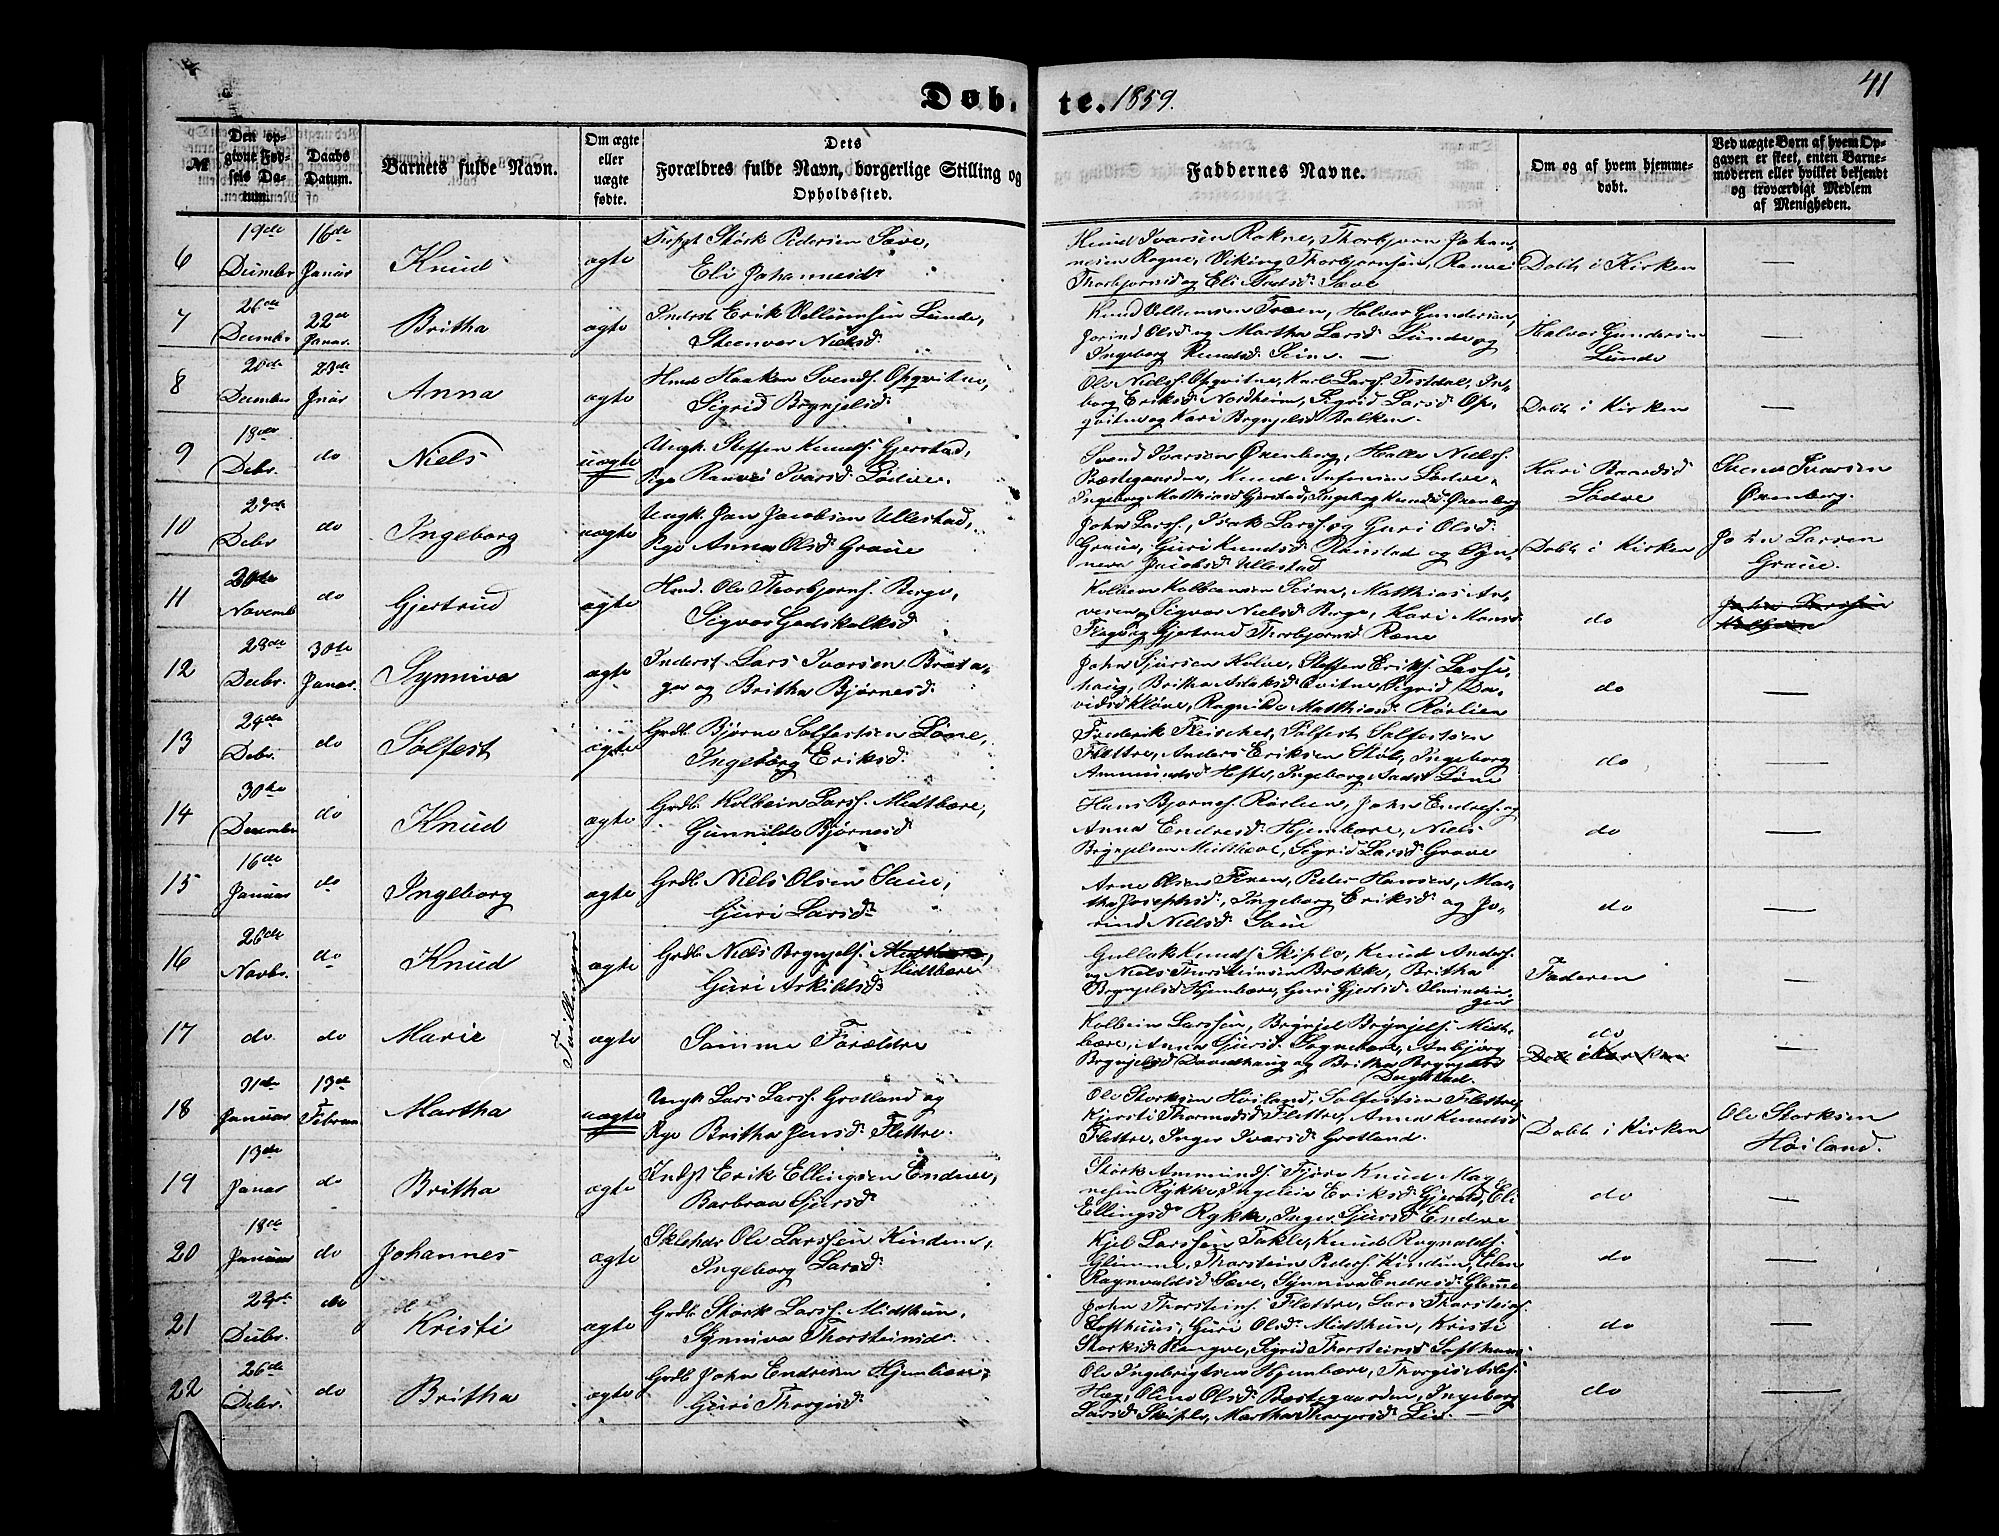 41
Døb- te. 1859.
№
Den opgivne Fødsels Datum.
Daabs Datum.
Barnets fulde Navn.
Om ægte eller uægte fødte.
Dets Forældres fulde Navn, borgerlige Stilling og Opholdssted.
Faddernes Navne.
Om og af hvem hjemmedøbt.
Ved uægte Børn af hvem Opgaven er skeet, enten Barnemoderen eller hvilket bekjendt og troværdigt Medlem af Menigheden.
6 19de Decembr 16de Januar Knud ægte Stórk Pedersen Sæve, Eli Johannesdr
Knud Ivarsen Rokne, Thorbjørn Johannesen Rogne, Viking Thorbjørnsen, Ranvei Thorbjørnsd og Eli Sæve
Døbt i Kirken —
7 26de Decembr 22de Januar. Britha ægte Inderst Erik Villumsen Lunde, Steenvor Nielsd.
Knud Villumsen Træen, Halvor Gundersen, Jorind Olsd og Martha Larsd Lunde og Ingeborg Knudsd. Seim. —
Halvor Gundersen Lunde —
8 20de Decembr 23de Anna ægte Hmd Haaken Svends. Opqvitne, Sigrid Brynjelsd.
Ole Niels. Opqvitne, Lars. Ingeborg Eriksd Nordheim, Sigrid Larsd Opqvitne og Kari Brynjelsd Balken.
Døbt i Kirken —
9 18de Debr. do Niels uægte Ungk. Steffen Knuds. Gjerstad, Pige Ranvei Ivarsd. Lødve.
Svend Ivarsen Øvenberg, Halle Niels. Præstegaarden, Knud Lødve, Ingeborg Matthiasd Gjerstad, Ingeborg Knudsd. Øvenberg
Kari Baardsd Lødve
Svend Ivarsen Øvenberg.
10 23de Debr do Ingeborg uægte Ungk. Jon Jacobsen Ullestad, Pige Anna Olsd. Graue
John Larss., Isak Larss og Guri Olsd. Graue, Guri Knudsd. Rønstad og Jacobsd. Ullestad
Døbt i Kirken
John Larsen Graue.
11 30te Novembr do Gjertrud ægte Hmd. Ole Thorbjørns. Berge, Sigvor Godskalksd
Kolbein Kolbeinsen Seim, Matthias Sigvor Nielsd Berge, Kari Monsd. og Gjertrud Thorbjørnsd. Rene
do
12 28de Decbr. 30te Januar. Synniva ægte Inderst Lars Ivarsen og Britha Bjørnesd.
John Sjursen Kolve, Steffen Eriks. Britha Aslaksd. Evitne, Sigrid Davidsd Kløve, Ragnilde Matthiasd. Rørlien
do —
13 29de Debr. do Sølfest ægte Grdb. Bjørne Sølfestsen Lóne, Ingeborg Eriksd.
Frederik Fleischer, Sølfest Sølfestsen Flettre, Anders Eriksen Ingeborg Ammundsd Hefte, Ingeborg Lóne
do —
14 30te December do Knud ægte Grdb. Kolbein Larss. Midtbære, Gunnilde Bjørnesd
Hans Bjørnes. Rørlien, John Endres. og Anna Endresd. Hjembære, Niels Brynjelsen Midtbære, Sigrid Larsd. Grove
do —
15 16de Januar do Ingeborg ægte Grdb. Niels Olsen Saue, Guri Larsd.
Arne Olsen Peder Hansen, Martha Josephsd., Ingeborg Eriksd. og Jorind Nielsd. Saue
do —
16 26de Novbr. do Knud ægte Grdb. Niels Brynjels. Midtbære, Guri Askildsd.
Gullak Knuds. Skiple, Knud Anders. og Niels Thorsteinsen Brække, Britha Brynjelsd Hjembære, Guri Gjertsd. Almindingen
Faderen —
Tvillinger
17 do do Marie ægte Samme Forældre
Kolbein Larssen, Brynjel Brynjels. Midtbære, Anna Sjursd. Anbjørg Brynjelsd Davidhaug og Britha Dugstad.
do —
18 31de Januar 13de Februar Martha uægte Ungk Lars Larss. Grotland og Pige Britha Jensd. Flettre.
Ole Storksen Høiland, Flettre, Kjersti Thormodsd. Flettre, Anna Knudsd Flettre, Inger Ivarsd. Grotland.
Døbt i Kirken
Ole Storksen Høiland.
19 13de Januar do Britha ægte Erik Ellingsen Endeve, Barbraa Sjursd.
Stork Ammunds. Knud Magnesen Rykke, Ingeleiv Eriksd. Eli Ellingsd. Rykke, Inger Sjursd Endeve
do —
20 18de Januar do Johannes ægte Ole Larssen Kinden, Ingeborg Larsd.
Kjel Larssen Takle, Knud Ragnalds. Glimme, Thorstein Peders. Kinden, Elen Ragnvaldsd Sæve, Synniva Endresd. Glimme
do —
21 23de Debr. do Kristi ægte Grdb. Stork Larss. Midthun, Synniva Thorsteinsdr.
John Thorsteins. Flettre, Lars Thorsteins. Lofthuus, Guri Olsd. Midthun, Kristi Storksd. Rongve, Sigrid Thorsteinsd Lofthuus
do —
22 26de Debr. do Britha ægte Grdb. John Endresen Hjembære, Guri Thorgisd.
Ole Ingebrigtsen Hjembære, Thorgis Olina Olsd. Præstegaarden, Ingeborg Larsd. Skiple, Martha Thorgersd. Lie. —
do —